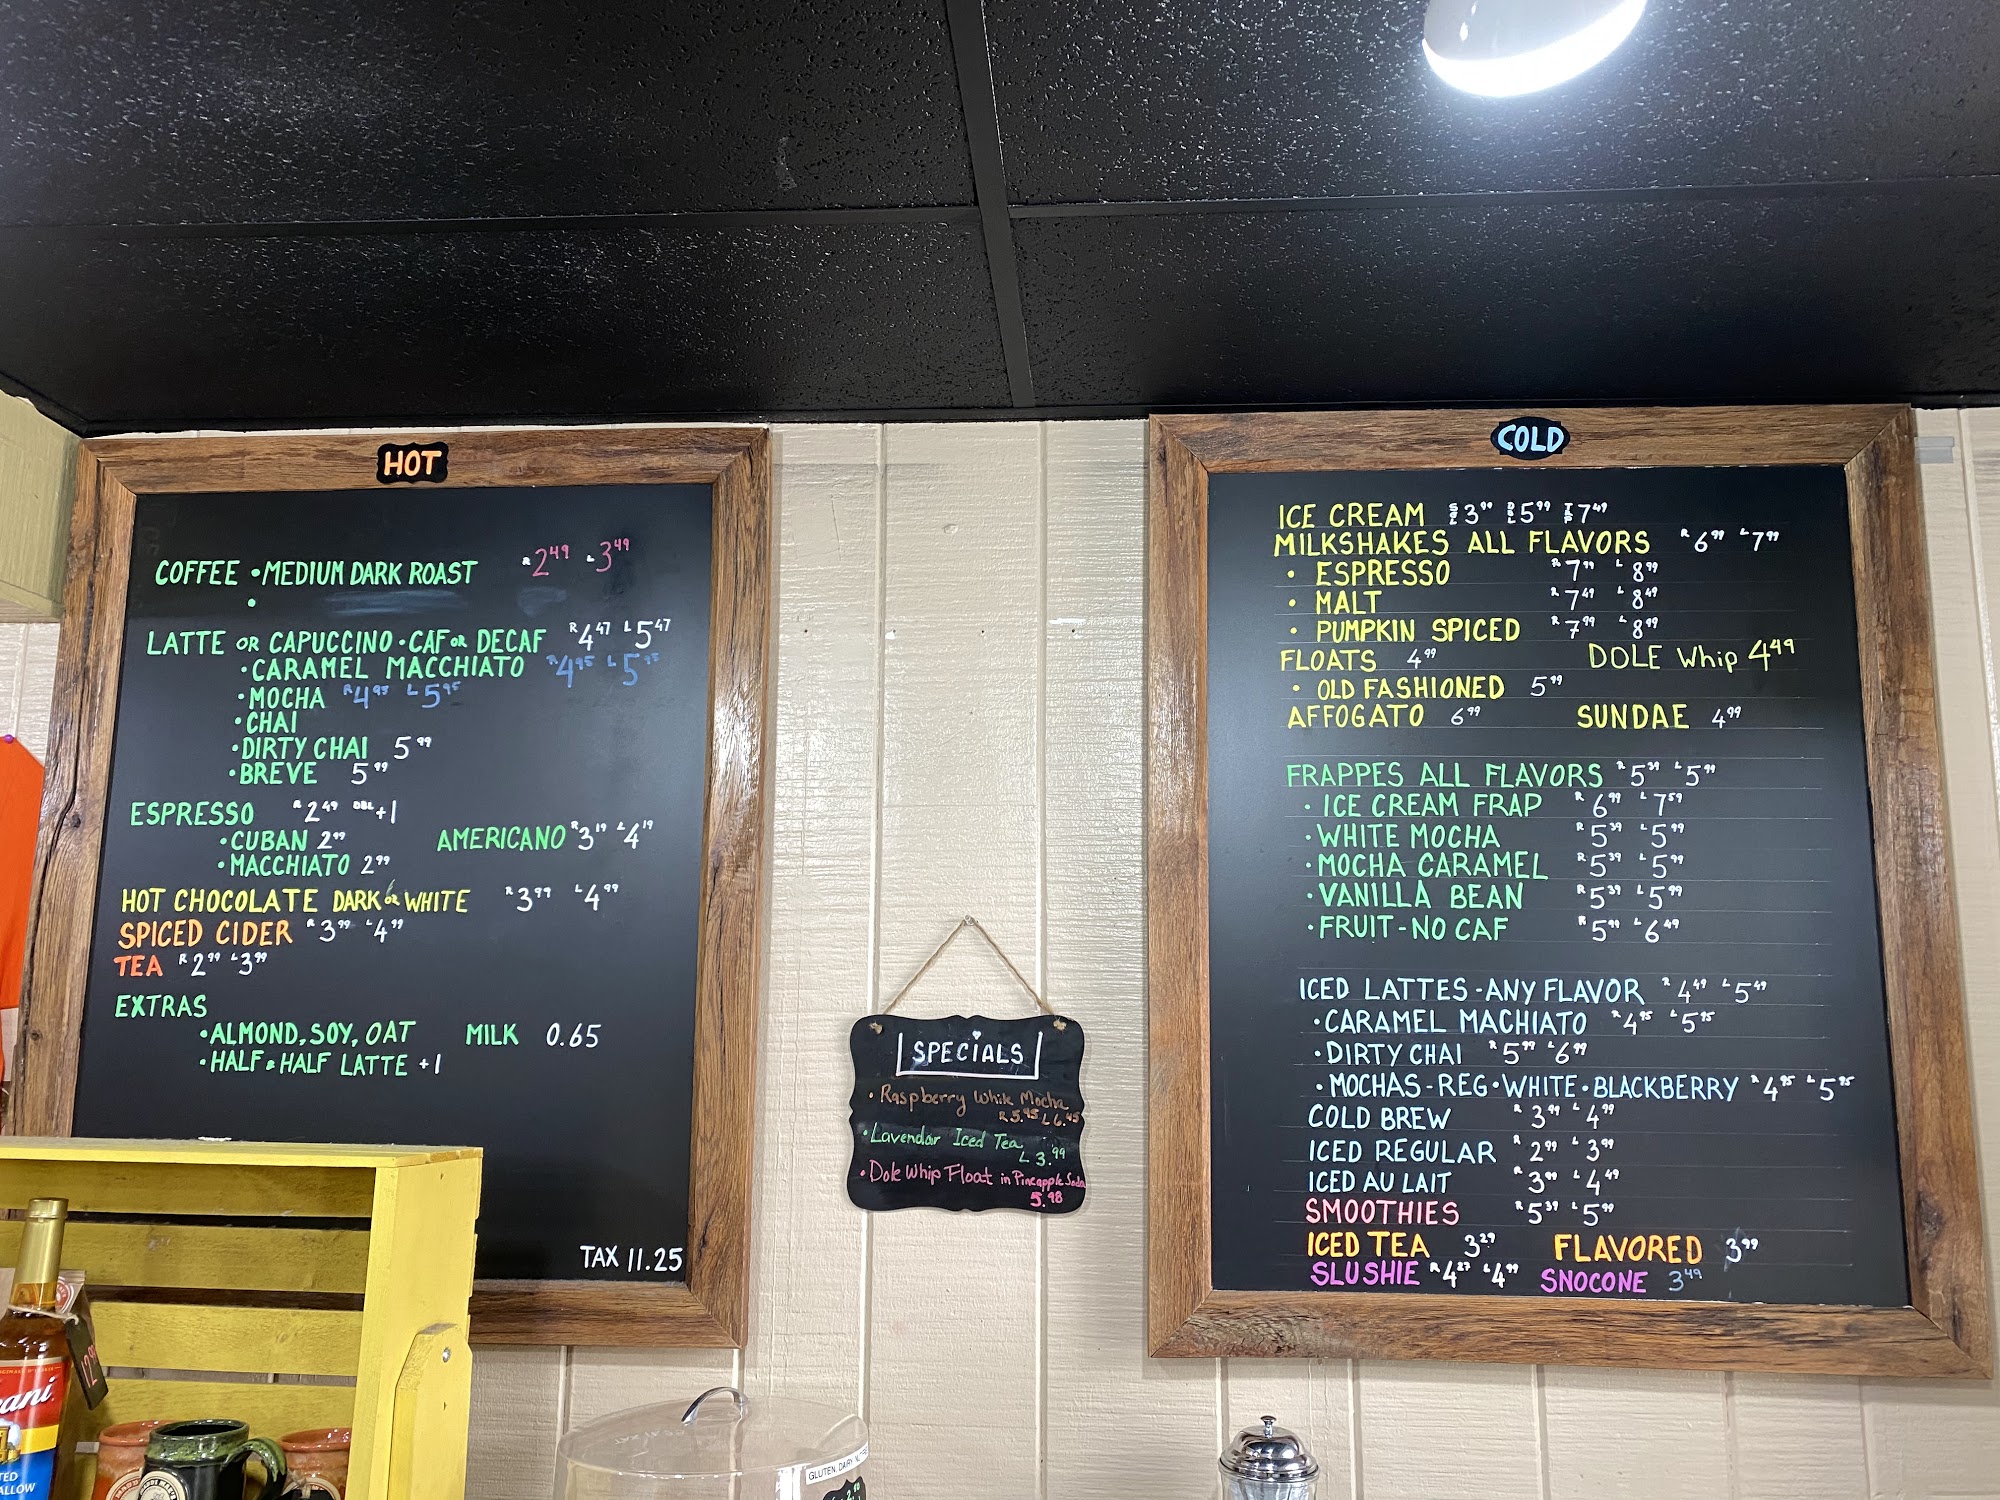 HOT
COFFEE • MEDIUM DARK ROAST R 2.49 L 3.49
•
LATTE OR CAPUCCINO • CAF OR DECAF R 4.47 L 5.47
• CARAMEL MACCHIATO R 4.95 L 5.95
• MOCHA R 4.95 L 5.95
• CHAI
• DIRTY CHAI 5.99
• BREVE 5.99
ESPRESSO R 2.49 DBL +1
• CUBAN 2.99 AMERICANO R 3.19 L 4.19
• MACCHIATO 2.99
HOT CHOCOLATE DARK or WHITE R 3.99 L 4.99
SPICED CIDER R 3.99 L 4.99
TEA R 2.99 L 3.99
EXTRAS
• ALMOND, SOY, OAT MILK 0.65
• HALF & HALF LATTE +1
TAX 11.25
SPECIALS
• Raspberry White Mocha
R 5.95 L 6.95
• Lavendar Iced Tea
L 3.99
• Dole Whip Float in Pineapple Soda
5.98
COLD
ICE CREAM SGL 3.99 DBL 5.99 TRP 7.49
MILKSHAKES ALL FLAVORS R 6.99 L 7.99
• ESPRESSO R 7.99 L 8.99
• MALT R 7.49 L 8.49
• PUMPKIN SPICED R 7.99 L 8.99
FLOATS 4.99 DOLE Whip 4.49
• OLD FASHIONED 5.99
AFFOGATO 6.99 SUNDAE 4.99
FRAPPES ALL FLAVORS R 5.39 L 5.99
• ICE CREAM FRAP R 6.99 L 7.59
• WHITE MOCHA R 5.39 L 5.99
• MOCHA CARAMEL R 5.39 L 5.99
• VANILLA BEAN R 5.39 L 5.99
• FRUIT - NO CAF R 5.99 L 6.49
ICED LATTES - ANY FLAVOR R 4.49 L 5.49
• CARAMEL MACHIATO R 4.95 L 5.95
• DIRTY CHAI R 5.99 L 6.99
• MOCHAS - REG • WHITE • BLACKBERRY R 4.95 L 5.95
COLD BREW R 3.99 L 4.99
ICED REGULAR R 2.99 L 3.99
ICED AU LAIT R 3.99 L 4.49
SMOOTHIES R 5.39 L 5.99
ICED TEA 3.29 FLAVORED 3.99
SLUSHIE R 4.27 L 4.99 SNOCONE 3.49
GLUTEN, DAIRY